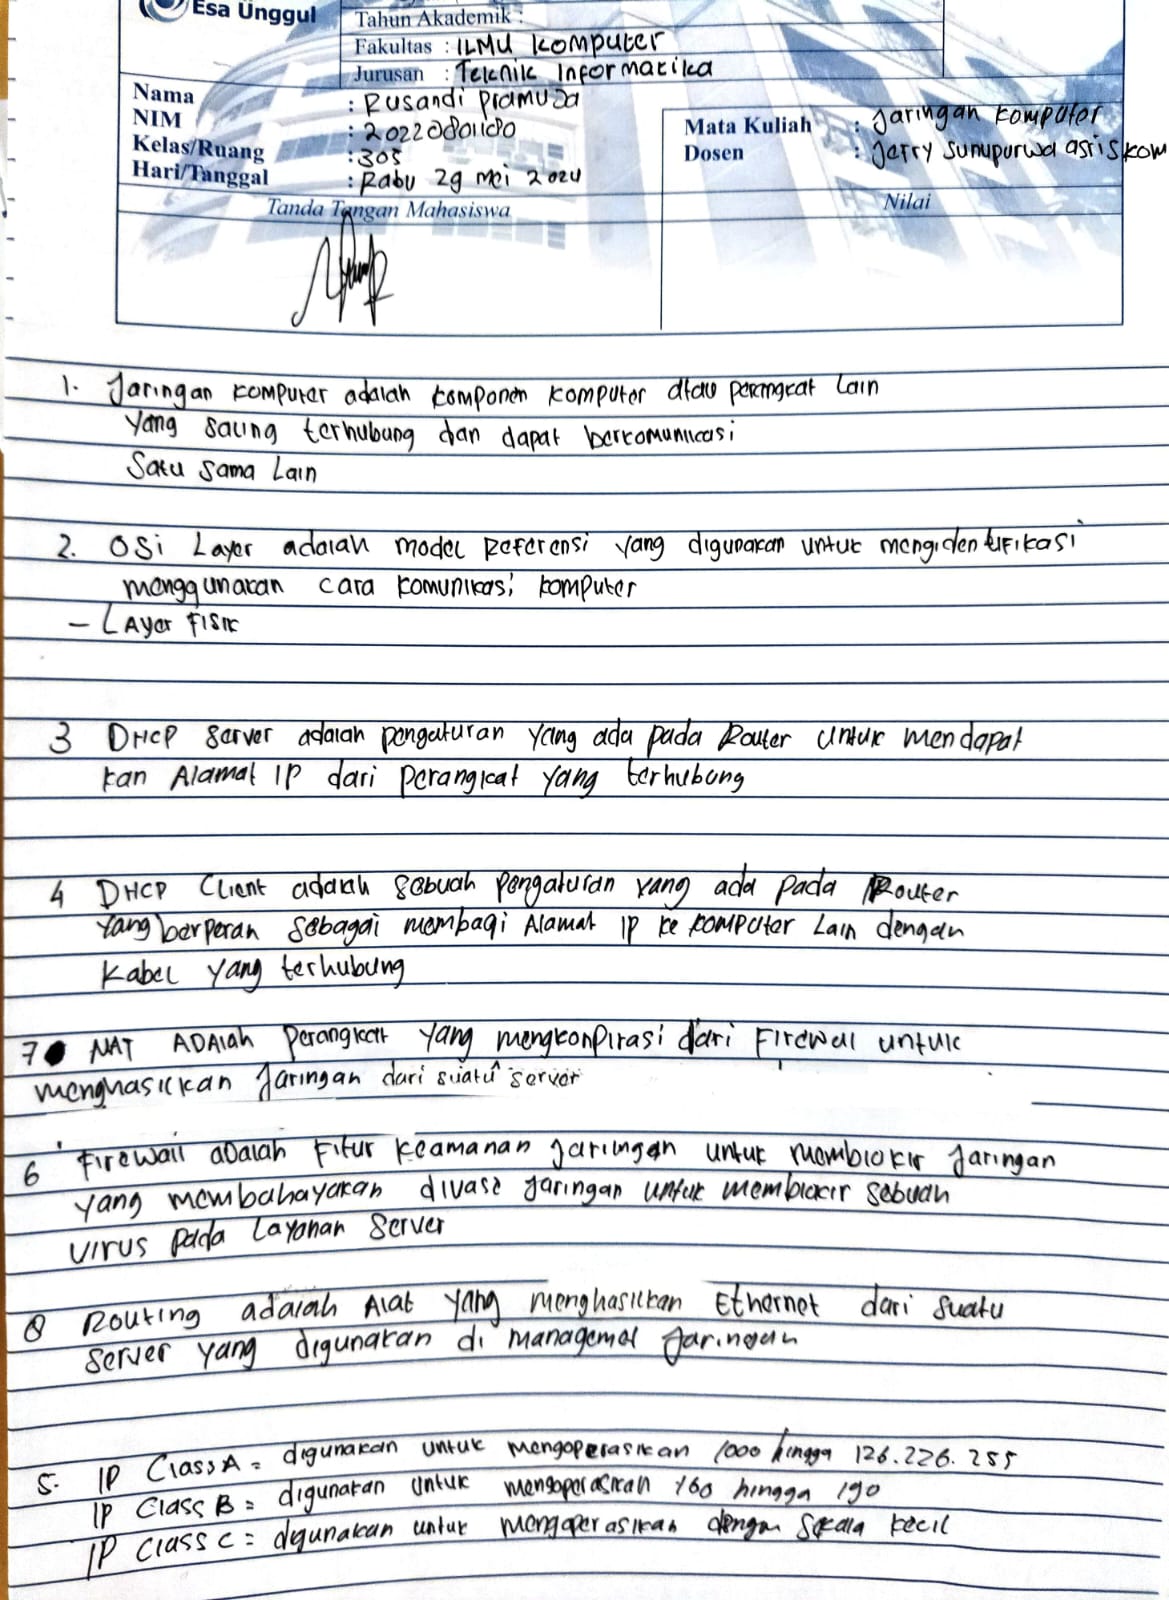 Esa Unggul
Tahun Akademik :
Fakultas : ILMU Komputer
Jurusan : Teknik Informatika
Nama : Rusandi pramuja
NIM : 20220801180
Kelas/Ruang : 305
Hari/Tanggal : Rabu 29 mei 2024
Mata Kuliah : Jaringan Komputer
Dosen : Jefry sunupurwa asri s.kom
Tanda Tangan Mahasiswa
Nilai
1. Jaringan komputer adalah komponen komputer atau perangkat Lain
yang saling terhubung dan dapat berkomunikasi
Satu sama Lain
2. OSi Layer adalah model Referensi yang digunakan untuk mengidentifikasi
menggunakan cara komunikasi komputer
- LAyer Fisik
3 DHCP server adalah pengaturan yang ada pada Router untuk mendapat
kan Alamat IP dari perangkat yang terhubung
4 DHCP Client adalah sebuah pengaturan yang ada pada Router
yang berperan sebagai membagi Alamat IP ke komputer Lain dengan
Kabel yang terhubung
7 NAT ADAlah perangkat yang mengkonpirasi dari Firewal untuk
menghasilkan Jaringan dari suatu server
6 Firewall adalah Fitur keamanan Jaringan untuk memblokir Jaringan
yang membahayakan Jaringan untuk memblokir sebuah
virus pada Layanan server
8 Routing adalah Alat yang menghasilkan Ethernet dari suatu
server yang digunakan di Jaringan
5. IP Class A = digunakan untuk mengoperasikan 1000 hingga 126.226.255
IP Class B = digunakan untuk mengoperasikan 160 hingga 190
IP Class C = digunakan untuk mengoperasikan dengan Skala kecil